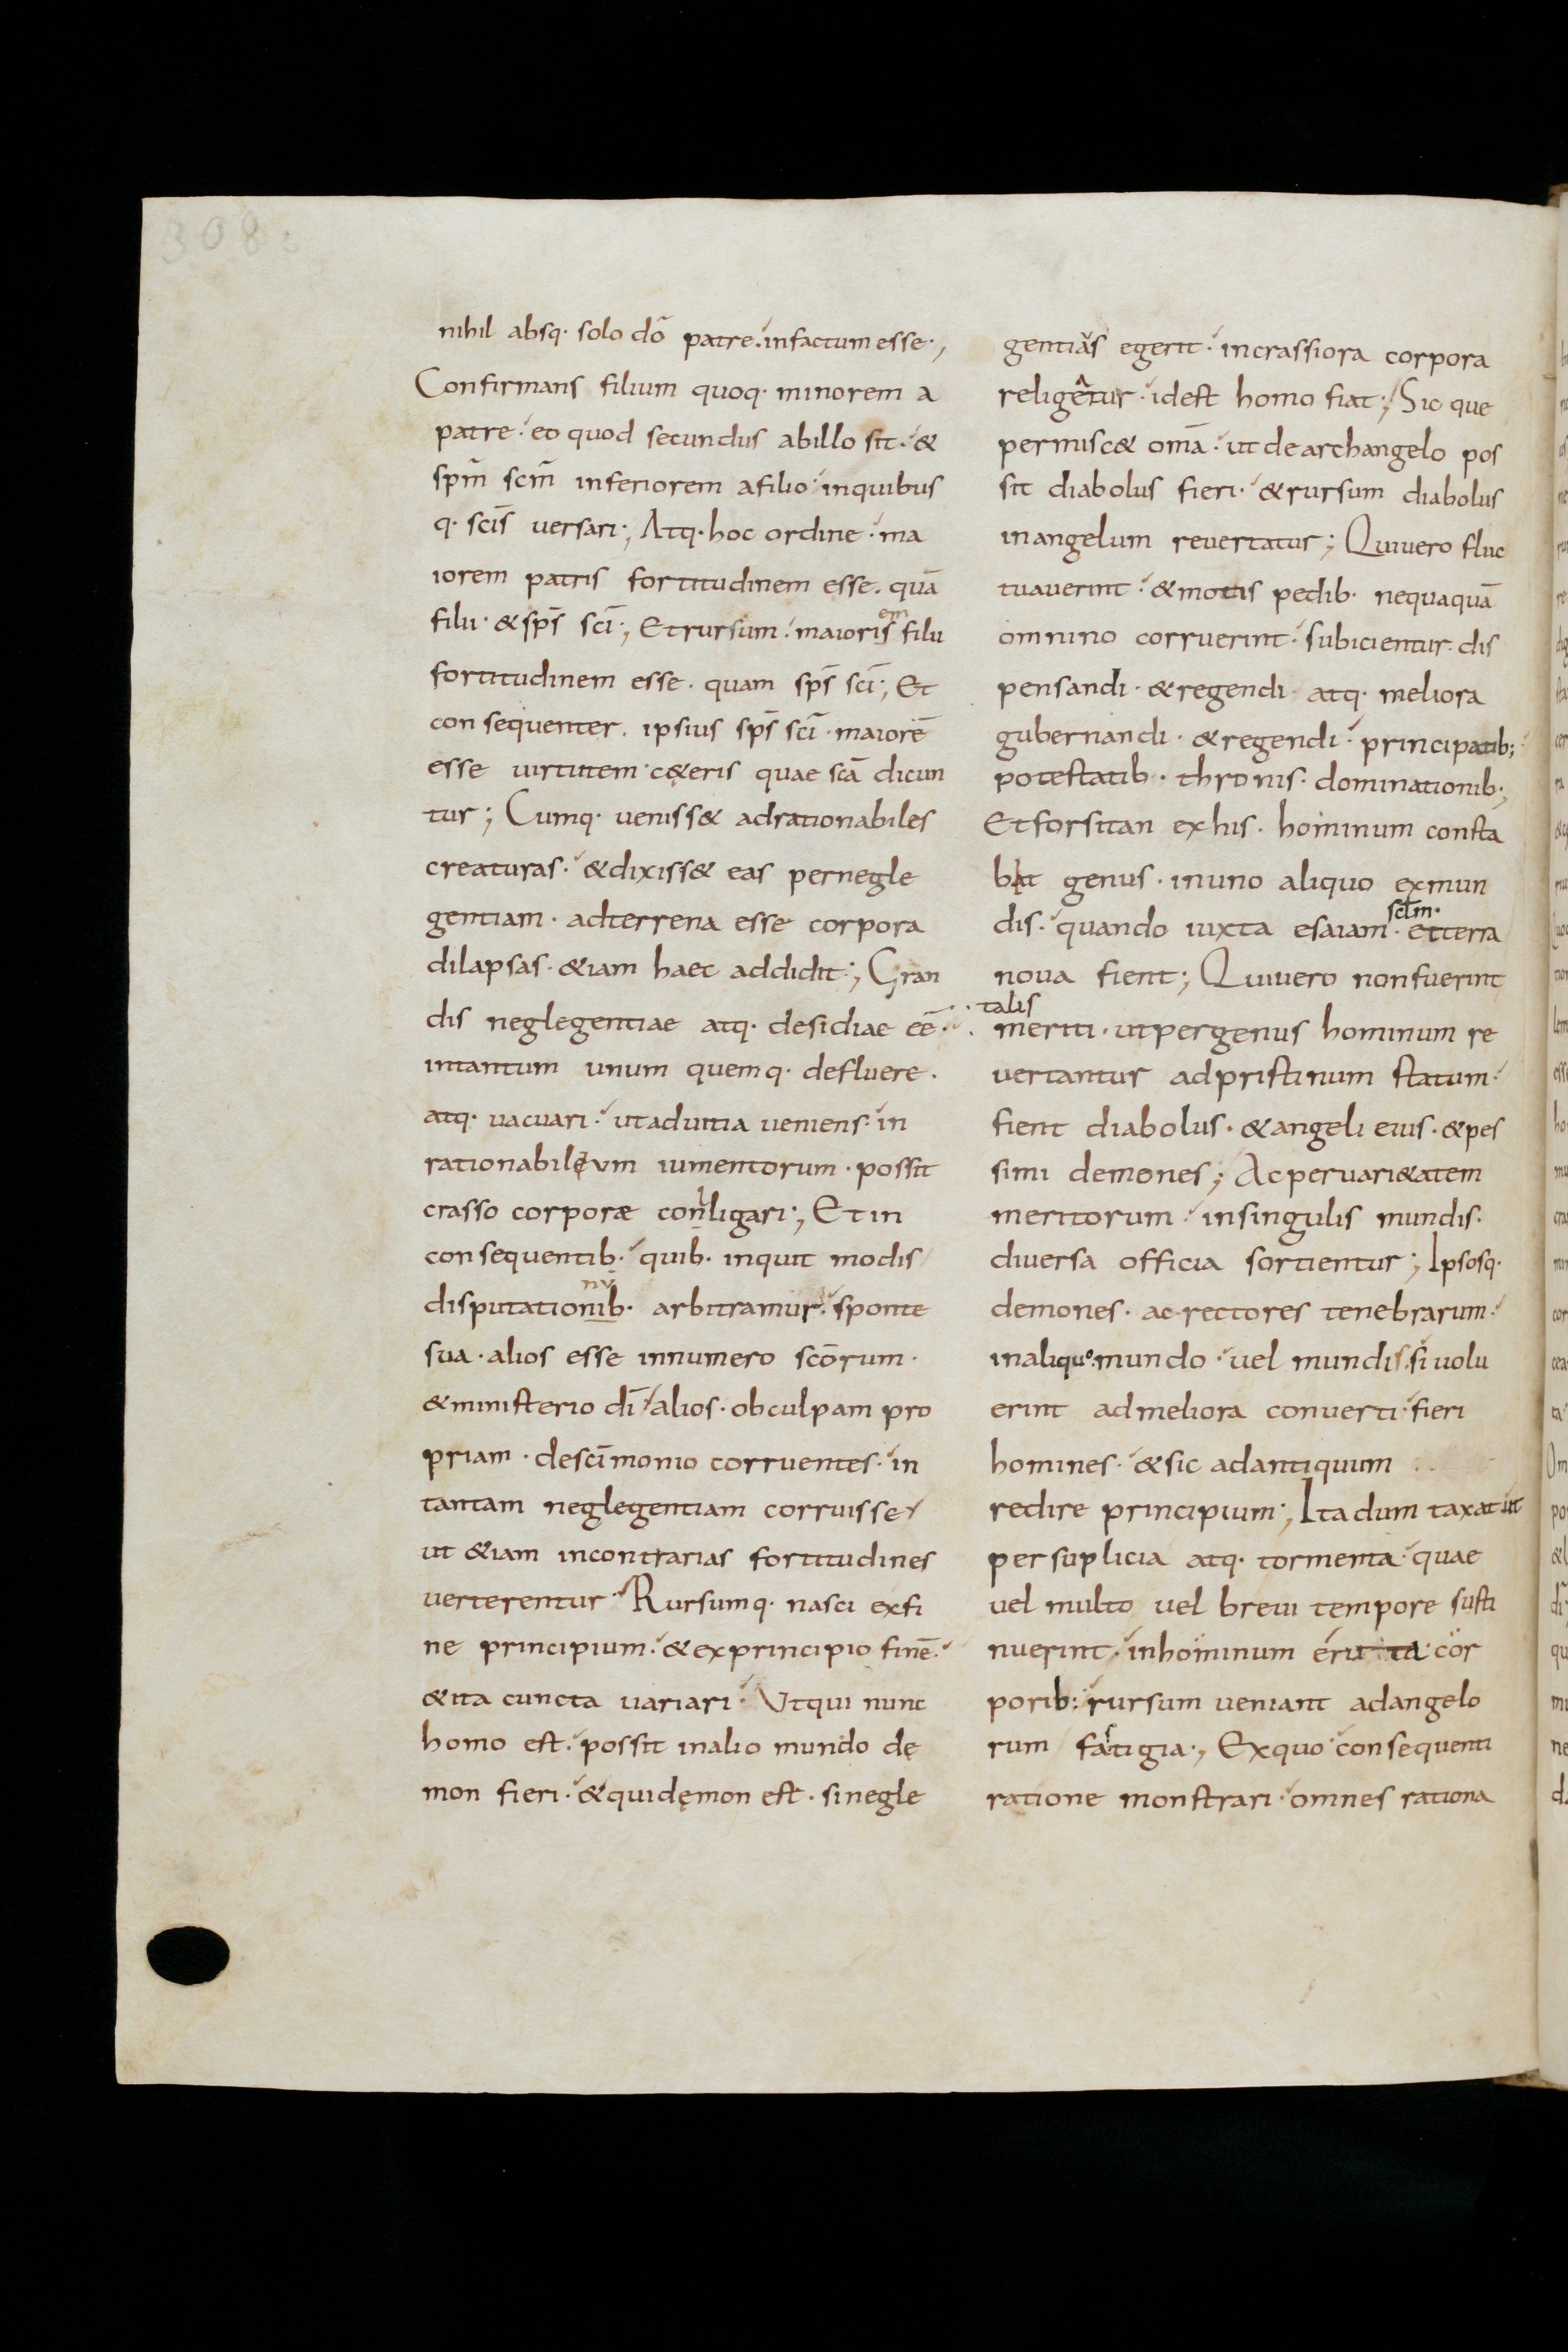 308
nihil absq· solo dō patre· infactum esse·,
Confirmans filium quoq· minorem a
patre· eo quod secundus abillo sit· &
spm̄ scm̄ inferiorem afilio· inquibus
q· scīs versari·; Atq· hoc ordine· ma
iorem patris fortitudinem esse· quā
filii· & sps̄ scī·; Et rursum· maioris em filii
fortitudinem esse· quam sps̄ scī·; Et
consequenter· ipsius sps̄ scī· maiorē
esse uirtutem· c&eris quae scā dicun
tur; Cumq· ueniss& adrationabiles
creaturas· &dixiss& eas pernegle
gentiam· adterrena esse corpora
dilapsas· &iam haec addidit·; Gran
dis neglegentiae atq· desidiae eē·
intantum unum quemq· defluere·
atq· uacuari· utaduitia ueniens· in
rationabilęvm iumentorum· possit
crasso corporæ conligari·; Et in
consequentib· quib· inquit modis
nv
disputationib· arbitramur· sponte
sua· alios esse innumero scōrum·
&ministerio dī alios· obculpam pro
priam· descīmonio corruentes· in
tantam neglegentiam corruisse
ut &iam incontrarias fortitudines
uerterentur· Rursumq· nasci exfi
ne principium· &exprincipio finē·
&ita cuncta uariari· Vtqui nunc
homo est· possit inalio mundo dę
mon fieri· &quidęmon est· sinegle
gentiǎs egerit· incrassiora corpora
religêtur· idest homo fiat·; Sic que
permisc& omā· ut dearchangelo pos
sit diabolus fieri· &rursum diabolus
inangelum reuertatur; Quiuero fluc
tuauerint· &motis pedib· nequaquā
omnino corruerint· subicientur· dis
pensandi· &regendi· atq· meliora
gubernandi· &regendi· principatib;
potestatib· thronis· dominationib·;
Etforsitan exhis· hominum consta
bit genus· inuno aliquo exmun
sclm·
dis· quando iuxta esaiam· etterra
noua fient; Quiuero nonfuerint
talis
meriti· utpergenus hominum re
uertantur adpristinum statum·
fient diabolus· &angeli eius· &pes
simi demones; Acperuari&atem
meritorum· insingulis mundis·
diuersa officia sortientur; Ipsosq·
demones· ac rectores tenebrarum·
inaliquo· mundo· uel mundis· siuolu
erint admeliora conuerti· fieri
homines· &sic adantiquum
redire principium·; Ita dum taxat ut
persuplicia atq· tormenta· quae
uel multo uel breui tempore susti
nuerint· inhominum cör
porib; rursum ueniant adangelo
rum fastigia·; Exquo consequenti
ratione monstrari· omnes rationa